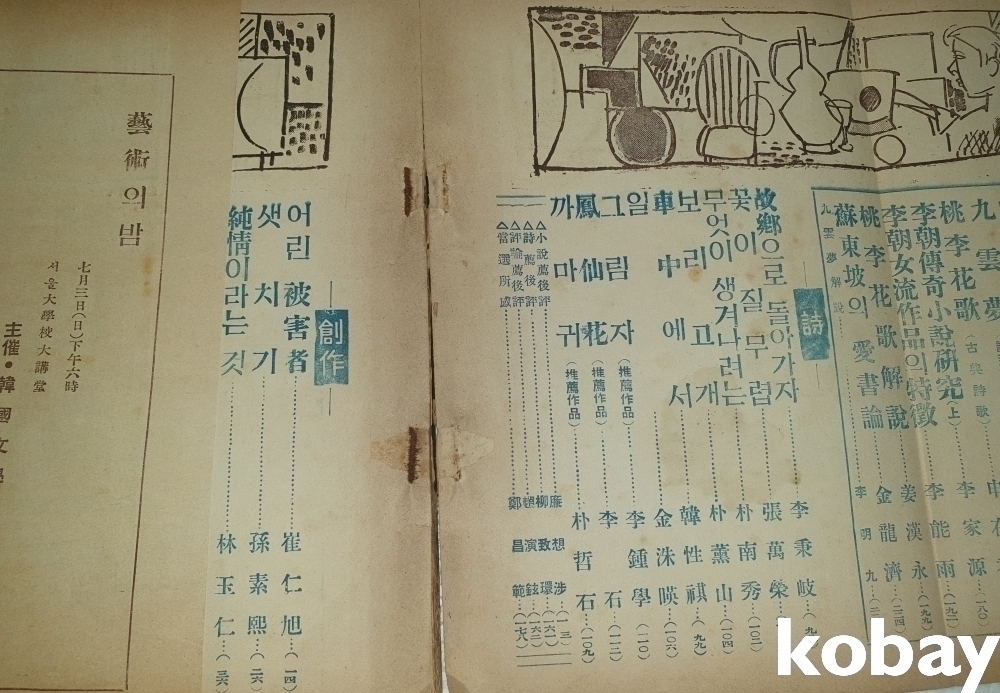 九雲夢
桃李花歌(古典詩歌)…李家源…(一八〇)
李朝傳奇小說硏究(上)…李能雨…(一九二)
李朝女流作品의特徵…姜漢永…(一九九)
桃李花歌解說…金龍濟…(二二四)
蘇東坡의愛書論
九雲夢解說…李明九
詩
故鄕으로 돌아가자…李秉岐
꽃이 질 무렵…張萬榮…(一〇二)
무엇이 생겨나려는…朴南秀
보리고개…朴薰山…(一〇四)
車中에서…韓性祺…(九九)
일…金洙暎…(一〇六)
그림자(推薦作品)…李鍾學
鳳仙花(推薦作品)…李石…(一一二)
까마귀(推薦作品)…朴哲石…(一〇九)
△小說薦後評…廉想涉
△詩薦後評…柳致環…(一六一)
△評論薦後評…趙演鉉…(一六二)
△當選所感…鄭昌範
創作
어린 被害者…崔仁旭…(一四)
샛치기…孫素熙…(二六)
純情이라는 것…林玉仁…(三六)
藝術의밤
七月三日(日)下午六時
서울大學校大講堂
主催・韓國文
kobay